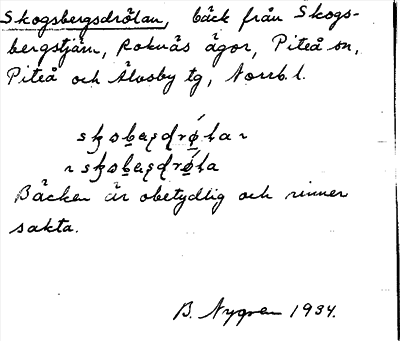 Skogsbergsdrölan, bäck från Skogs-
bergstjärn, Roknäs ägor, Piteå sn,
Piteå och Älvsby tg, Norrb. l.
Bäcken är obetydlig och rinner
sakta.
B. Nygren 1934.